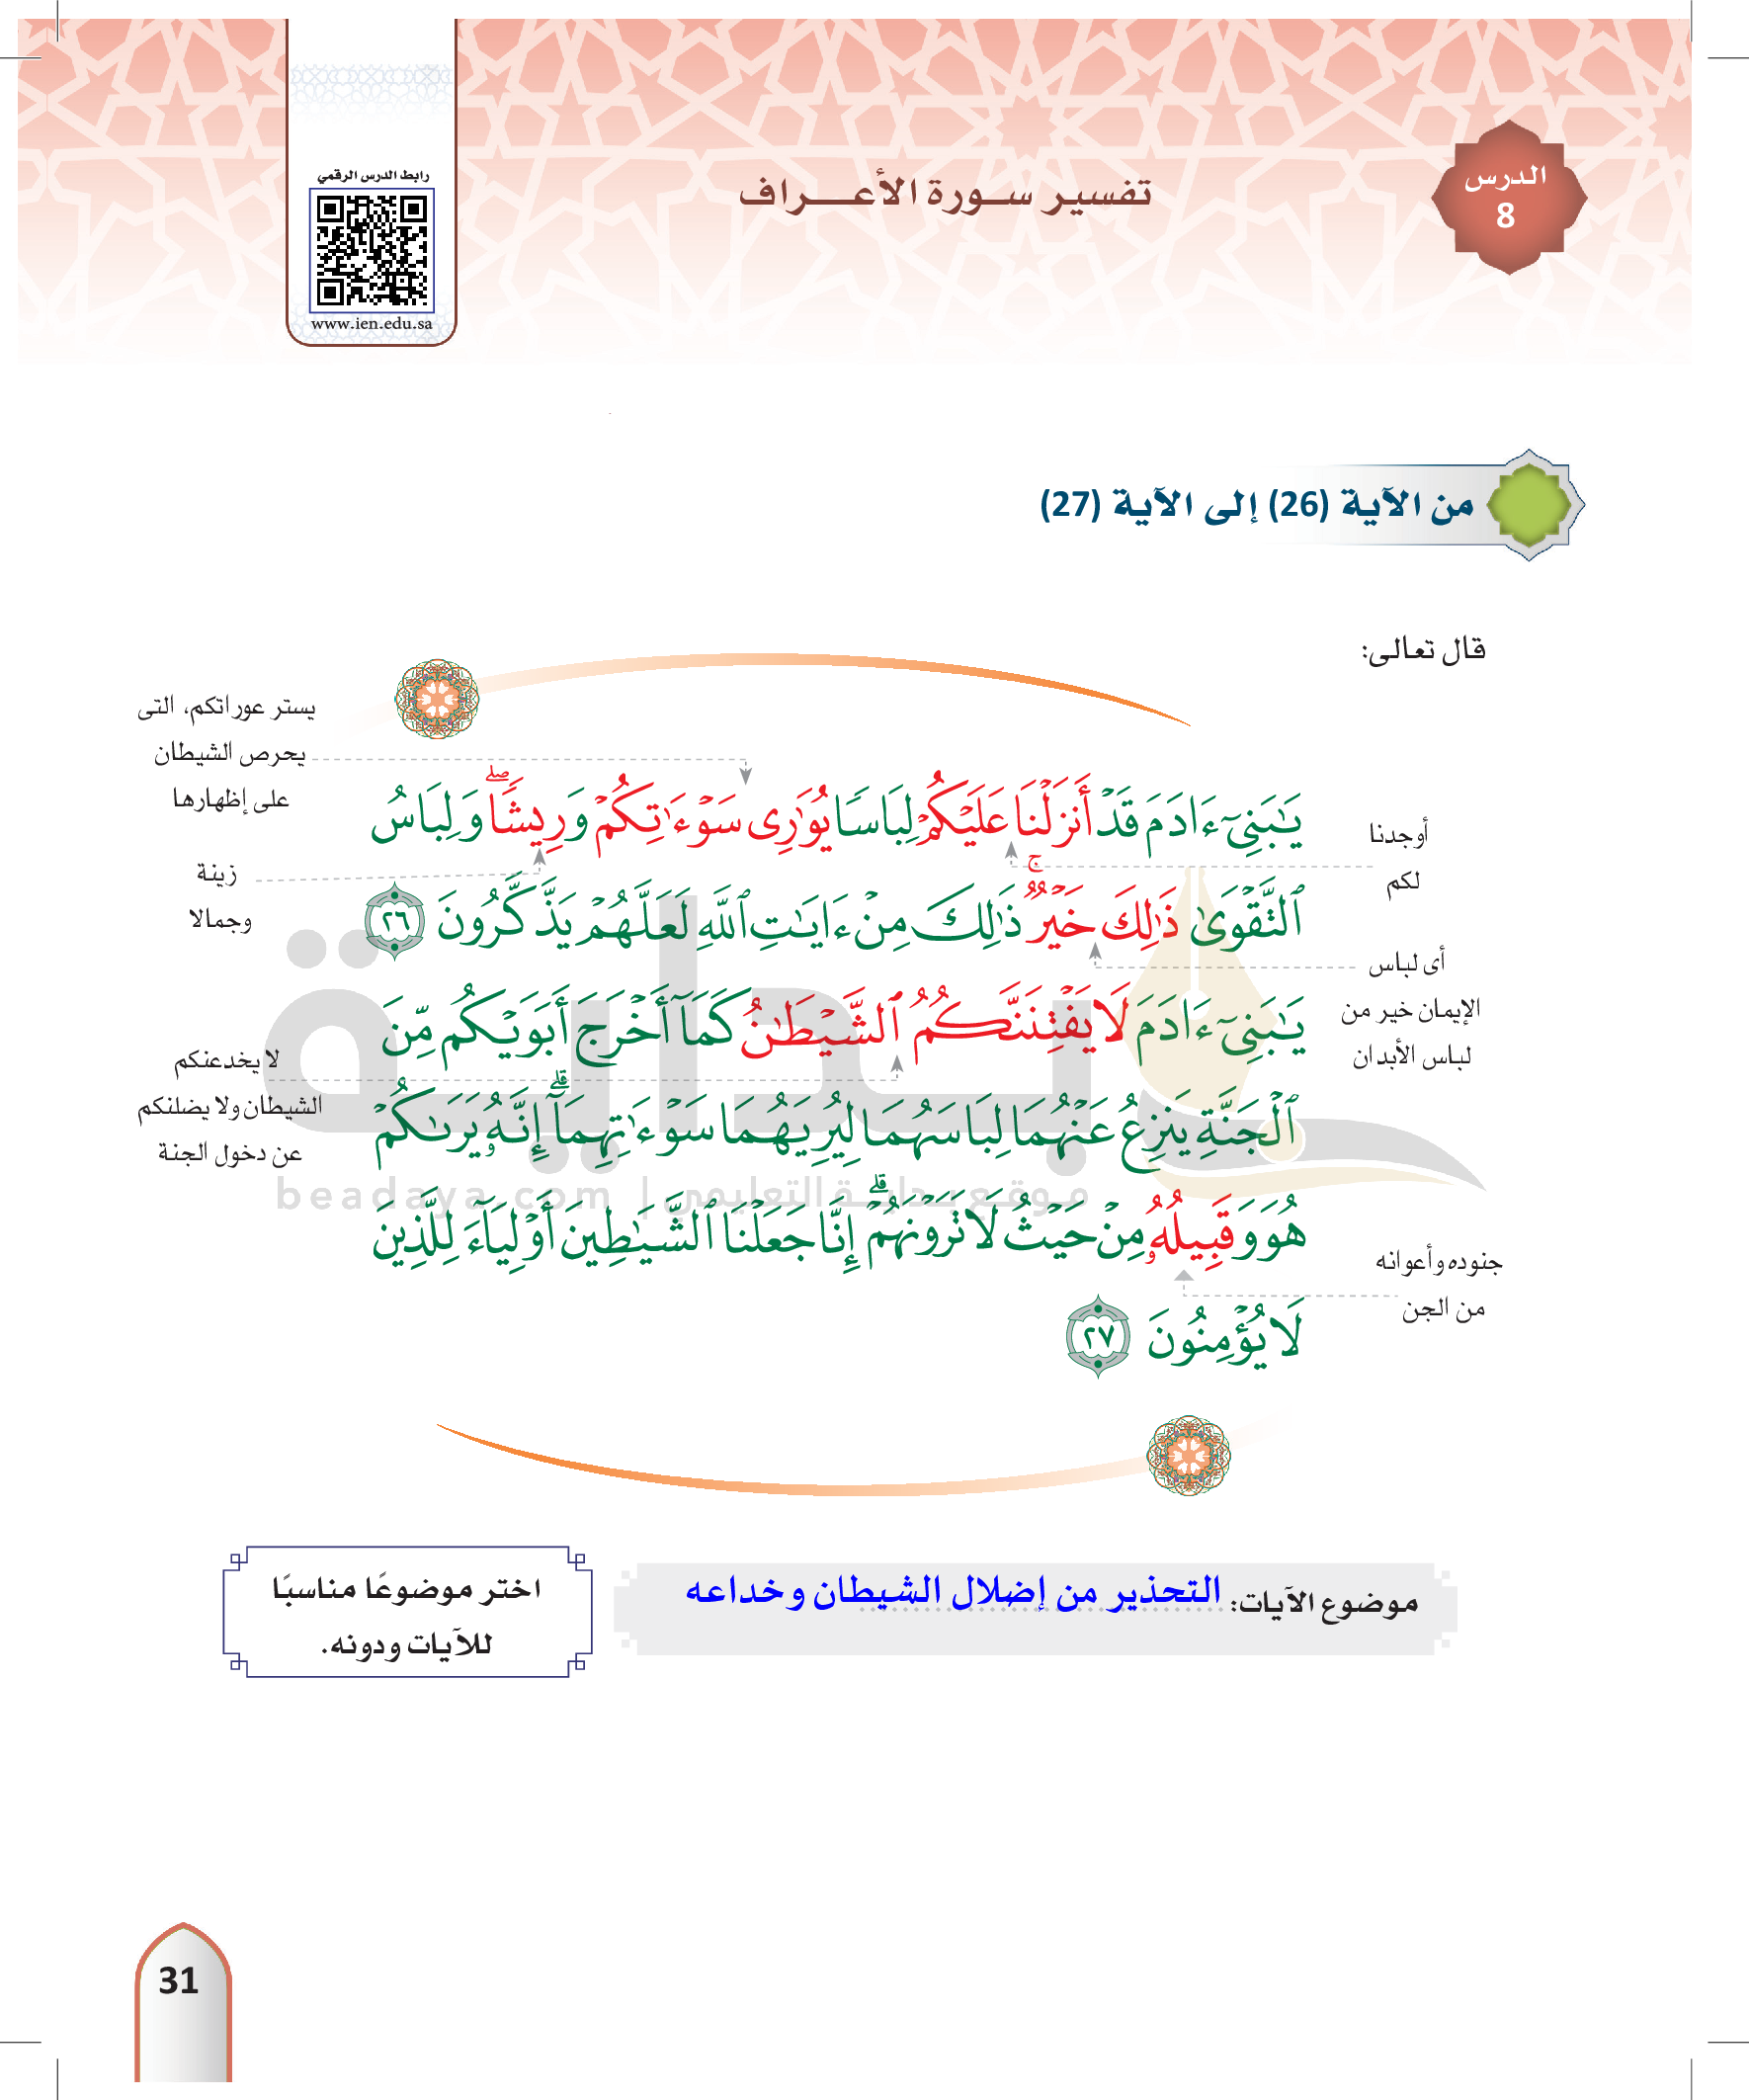 الدرس
8
تفسير سورة الأعراف
رابط الدرس الرقمي
www.ien.edu.sa
من الآية (26) إلى الآية (27)
قال تعالى:
يَٰبَنِيٓ ءَادَمَ قَدۡ أَنزَلۡنَا عَلَيۡكُمۡ لِبَاسٗا يُوَٰرِي سَوۡءَٰتِكُمۡ وَرِيشٗاۖ وَلِبَاسُ
ٱلتَّقۡوَىٰ ذَٰلِكَ خَيۡرٞۚ ذَٰلِكَ مِنۡ ءَايَٰتِ ٱللَّهِ لَعَلَّهُمۡ يَذَّكَّرُونَ ٢٦
يَٰبَنِيٓ ءَادَمَ لَا يَفۡتِنَنَّكُمُ ٱلشَّيۡطَٰنُ كَمَآ أَخۡرَجَ أَبَوَيۡكُم مِّنَ
ٱلۡجَنَّةِ يَنزِعُ عَنۡهُمَا لِبَاسَهُمَا لِيُرِيَهُمَا سَوۡءَٰتِهِمَآۚ إِنَّهُۥ يَرَىٰكُمۡ
هُوَ وَقَبِيلُهُۥ مِنۡ حَيۡثُ لَا تَرَوۡنَهُمۡۗ إِنَّا جَعَلۡنَا ٱلشَّيَٰطِينَ أَوۡلِيَآءَ لِلَّذِينَ
لَا يُؤۡمِنُونَ ٢٧
أوجدنا
لكم
أى لباس
الإيمان خير من
لباس الأبدان
جنوده وأعوانه
من الجن
يستر عوراتكم، التى
يحرص الشيطان
على إظهارها
زينة
وجمالا
لا يخدعنكم
الشيطان ولا يضلنكم
عن دخول الجنة
بداية
موقع بداية التعليمي | beadaya.com
موضوع الآيات: التحذير من إضلال الشيطان وخداعه
اختر موضوعًا مناسبًا
للآيات ودونه.
31